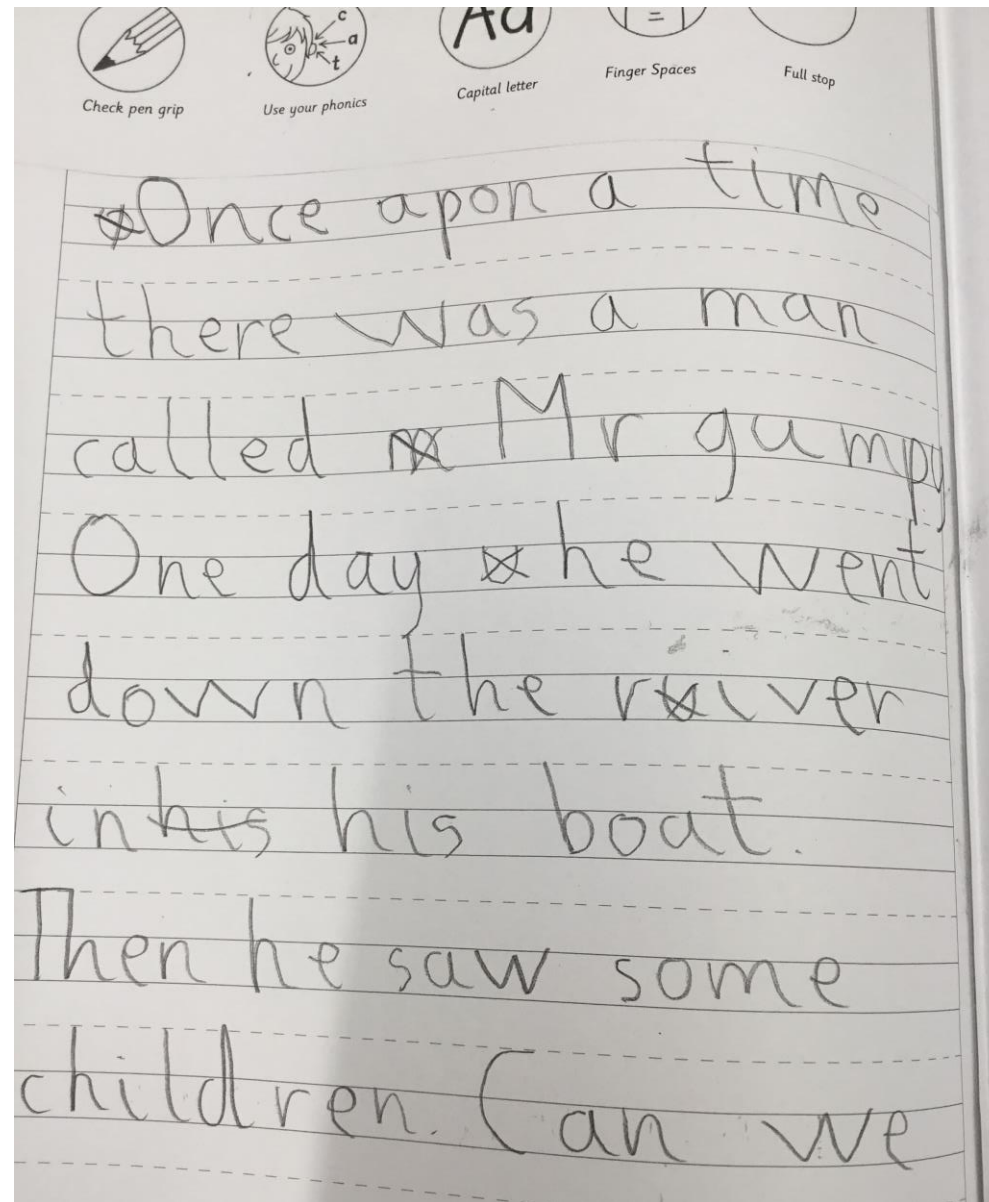 c
a
t
Aa
Check pen grip
Use your phonics
Capital letter
Finger Spaces
Full stop
Once apon a time
there was a man
called Mr gumpy
One day he went
down the river
in his his boat.
Then he saw some
children. Can we